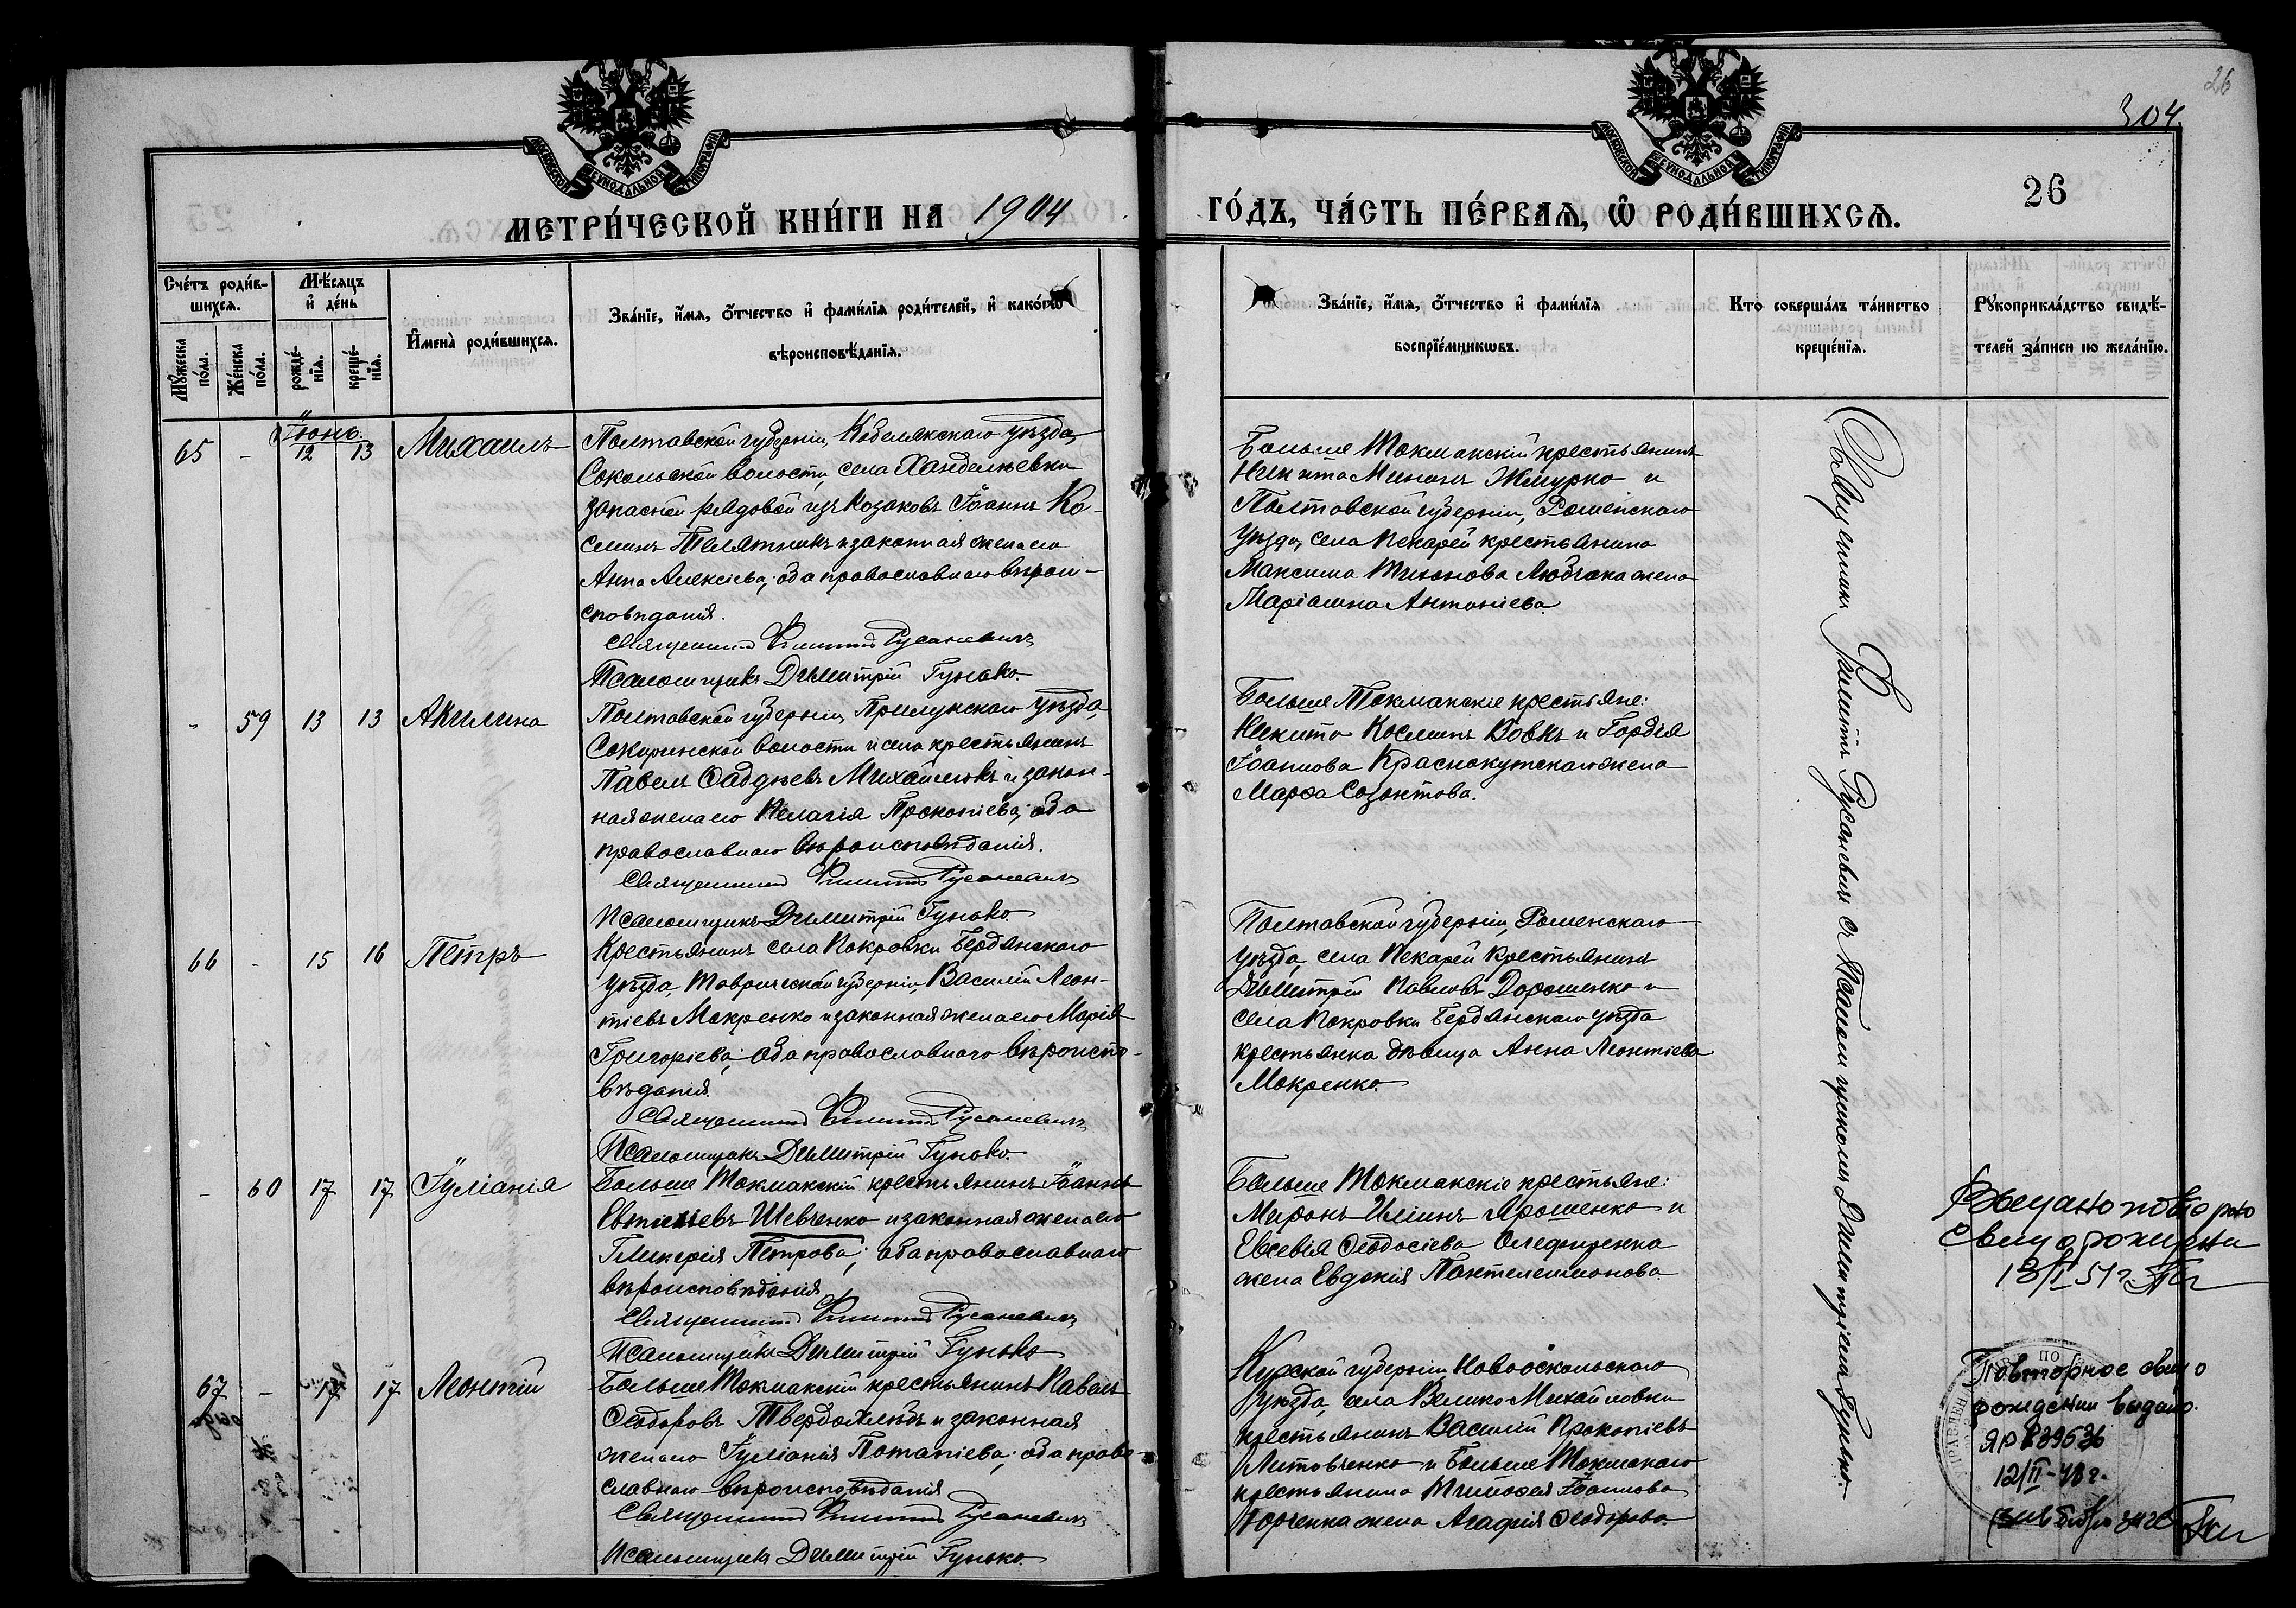 26
304.
МОСКОВСКОЙ СѴНОДАЛЬНОЙ ТИПОГРАФІИ
МОСКОВСКОЙ СѴНОДАЛЬНОЙ ТИПОГРАФІИ
26
МЕТРИ́ЧЕСКОЙ КНИ́ГИ НА 1904
ГО́ДЪ, ЧА́СТЬ ПЕ́РВАЯ, Ѡ҆ РОДИ́ВШИХСѦ.
Сче́тъ роди́в-
шихся.
Мѣ́сяцъ
и҆ де́нь
Мꙋ́жеска
по́ла.
Же́нска
по́ла.
рожде́-
нїѧ.
креще́-
нїѧ.
И҆мена̀ роди́вшихся.
Зва́нїе, и҆́мѧ, ѻ҆́тчество и҆ фами́лїѧ роди́телей, и҆ како́гѡ
вѣроисповѣ́данїѧ.
Зва́нїе, и҆́мѧ, ѻ҆́тчество и҆ фами́лїѧ
воспрїе́мникѡвъ.
Кто соверша́лъ та́инство
креще́нїѧ.
Рꙋкоприкла́дство свидѣ́-
телей за́писи по жела́нїю.
Іюнь.
65 - 12 13 Михаилъ
Полтавской губерніи, Кобелякскаго уѣзда,
Сокольской волости, села Ханделѣевки
запасной рядовой изъ козаковъ Іоаннъ Ко-
сминъ Телятникъ и законная жена его
Анна Алексіева; оба православнаго вѣрои-
сповѣданія.
Священникъ Филиппъ Русаневичъ
Псаломщикъ Димитрій Гунько.
Больше Токмакскій крестьянинъ
Никита Мининъ Жмурко и
Полтавской губерніи, Роменскаго
уѣзда, села Пекарей крестьянина
Максима Тихонова Любчака жена
Маріамна Антоніева.
- 59 13 13 Акилина
Полтавской губерніи, Прилукскаго уѣзда,
Сокиринской волости и села крестьянинъ
Павелъ Фаддѣевъ Михайленко и закон-
ная жена его Пелагія Прокопіева; оба
православнаго вѣроисповѣданія.
Священникъ Филиппъ Русаневичъ
Псаломщикъ Димитрій Гунько.
Больше Токмакскіе крестьяне:
Никита Косминъ Вовкъ и Гордія
Іоаннова Краснокутскаго жена
Марѳа Созонтова.
66 - 15 16 Петръ
Крестьянинъ села Покровки Бердянскаго
уѣзда, Таврической губерніи, Василій Леон-
тіевъ Мокренко и законная жена его Марія
Григоріева; оба православнаго вѣроиспо-
вѣданія.
Священникъ Филиппъ Русаневичъ
Псаломщикъ Димитрій Гунько.
Полтавской губерніи, Роменскаго
уѣзда, села Пекарей крестьянинъ
Димитрій Павловъ Дорошенко и
села Покровки Бердянскаго уѣзда
крестьянка дѣвица Анна Леонтіева
Мокренко.
- 60 17 17 Іуліанія
Больше Токмакскій крестьянинъ Іоаннъ
Евтихіевъ Шевченко и законная жена его
Гликерія Петрова; оба православнаго
вѣроисповѣданія
Священникъ Филиппъ Русаневичъ
Псаломщикъ Димитрій Гунько
Больше Токмакскіе крестьяне:
Миронъ Илiинъ Ярошенко и
Евсевія Ѳеодосіева Олефиренка
жена Евдокія Пантелеимонова.
Выдано повторно
Свид. о рожден
13/I 51 г.
67 - 17 17 Леонтій
Больше Токмакскій крестьянинъ Павелъ
Ѳеодоровъ Твердохлѣбъ и законная
жена его Іуліанія Потапіева; оба право-
славнаго вѣроисповѣданія
Священникъ Филиппъ Русаневичъ
Псаломщикъ Димитрій Гунько
Курской губерніи Новооскольскаго
уѣзда, села Велико Михайловки
крестьянинъ Василій Прокопіевъ
Литовченко и Больше Токмакскаго
крестьянина Тимоѳея Іоаннова
Юрченка жена Агафія Ѳеодорова.
Повторное свид о
рождении выдано.
ЯР 839536
12/II-48 г.
Священникъ Филиппъ Русаневичъ съ Псаломщикомъ Димитріемъ Гунько.